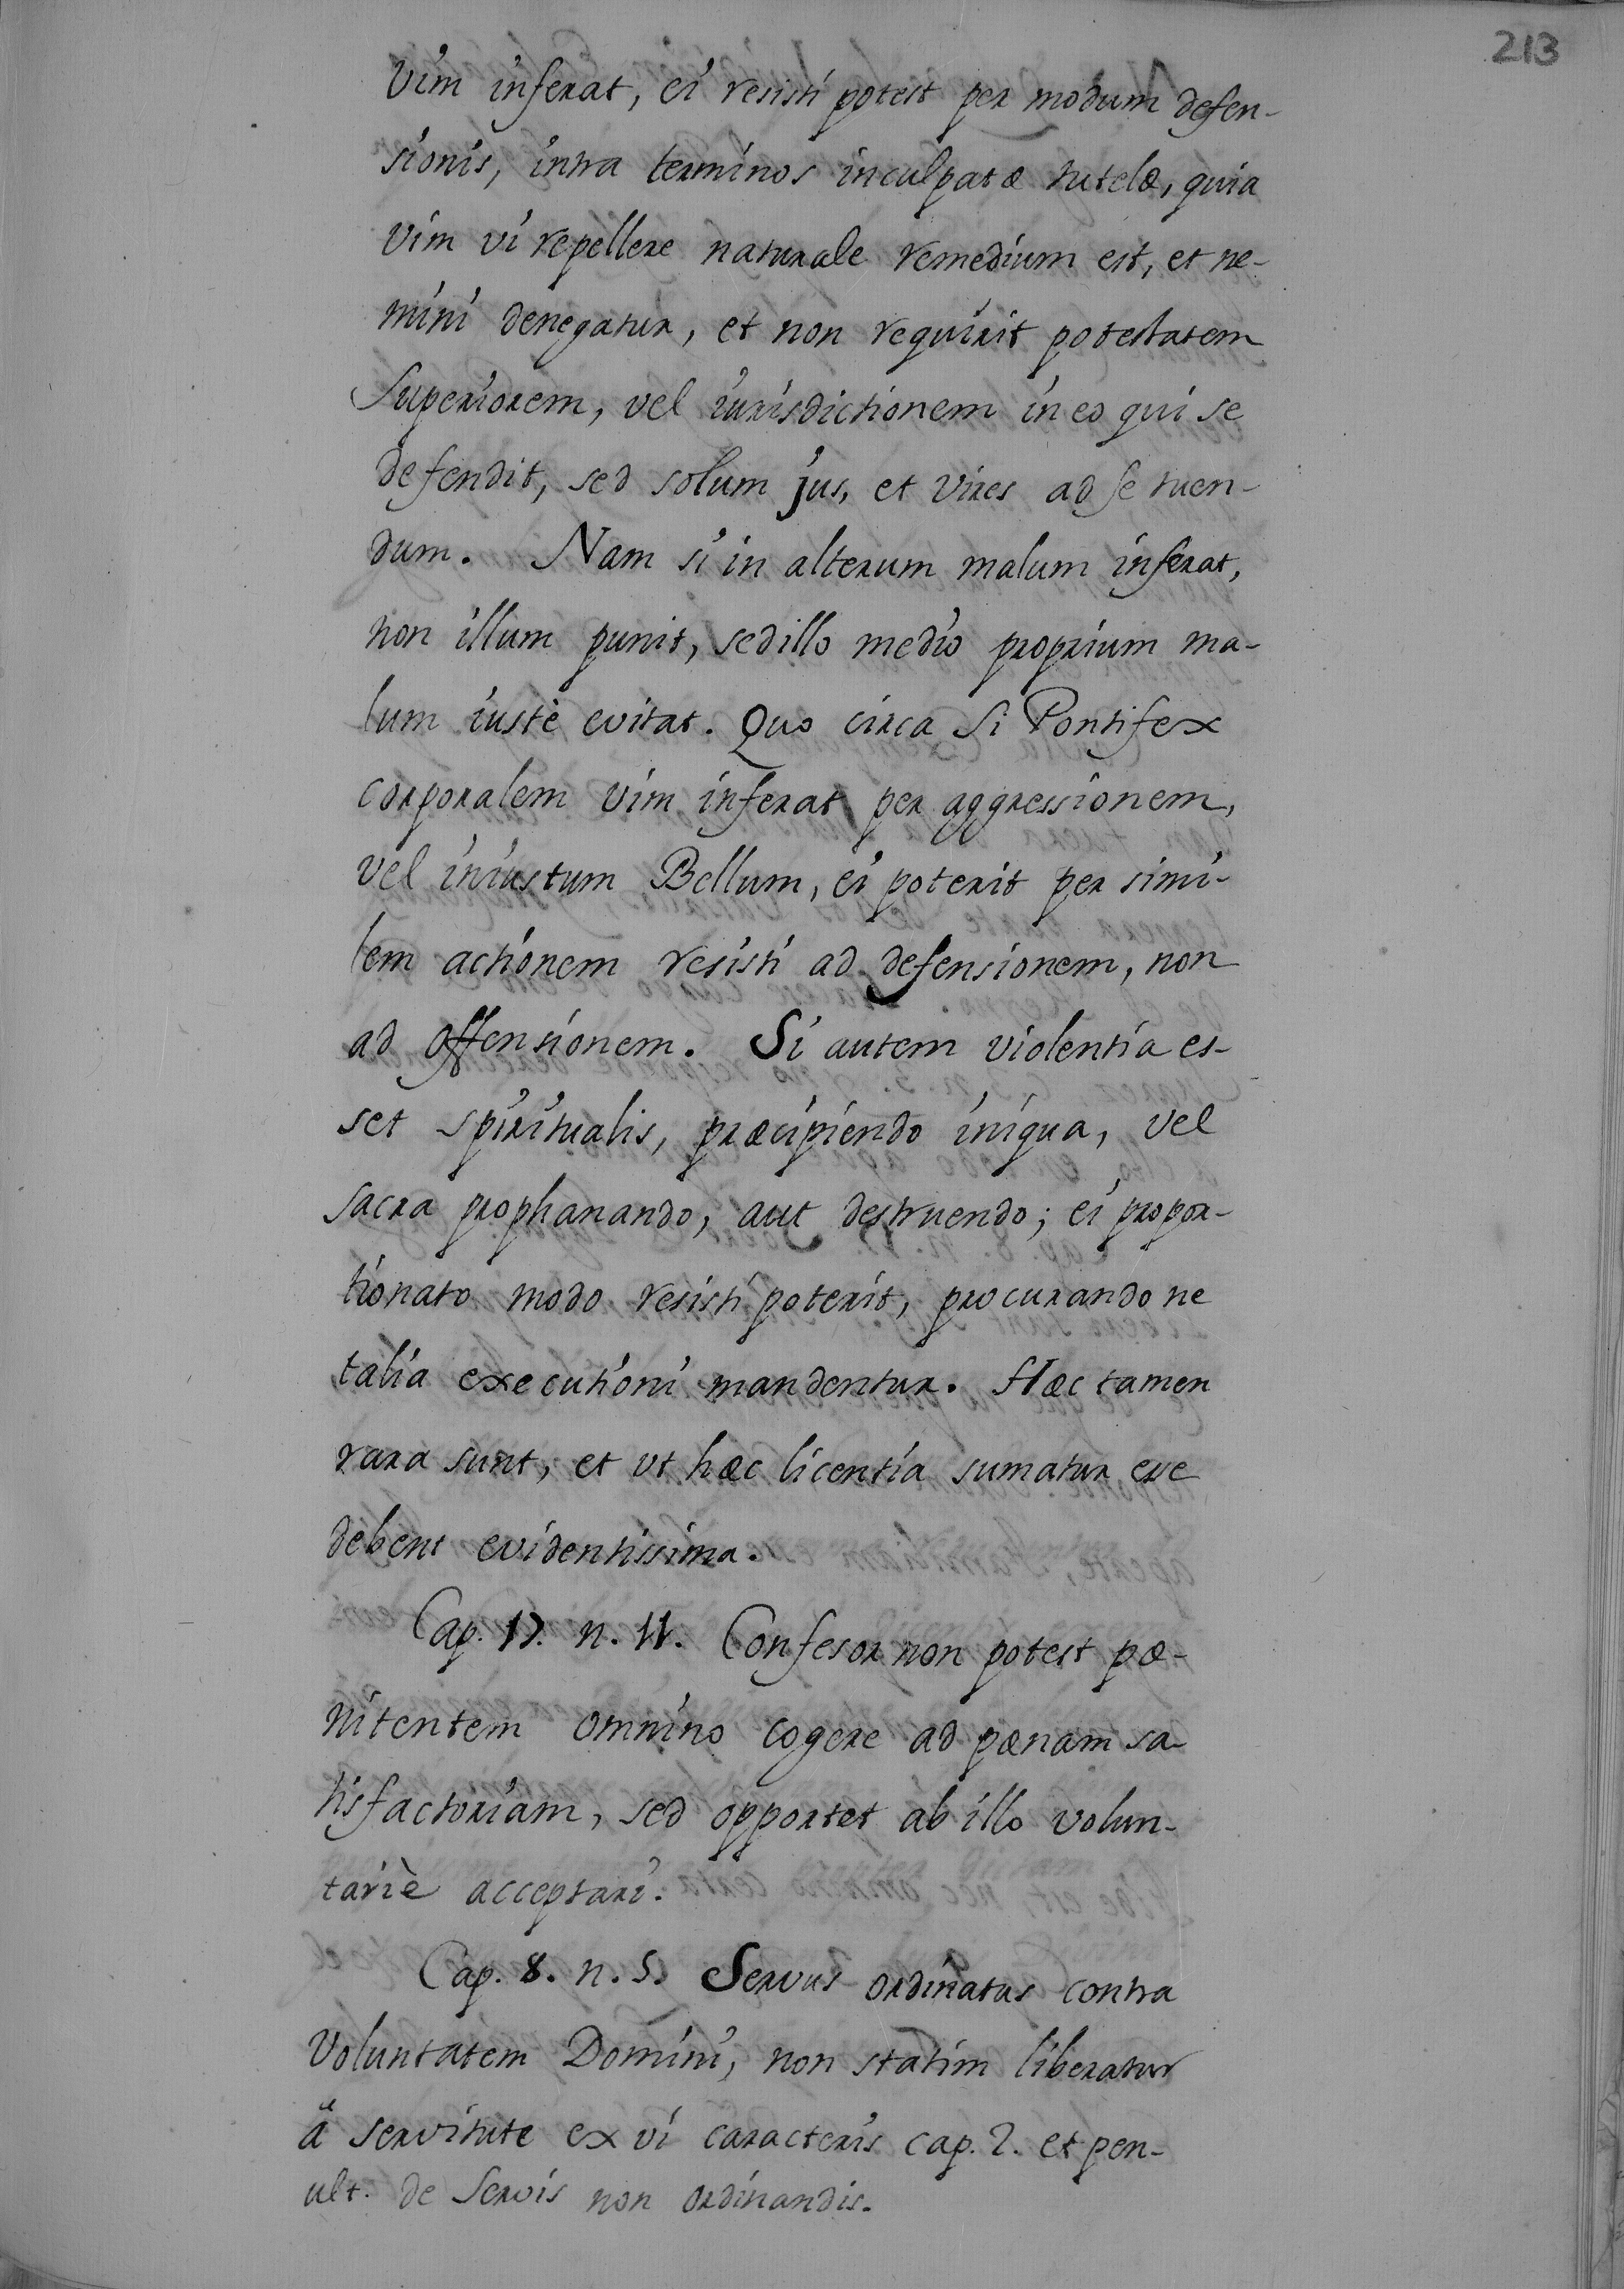 213
Vim inferat, ei resisti potest per modum defen-
sionis, intra terminos inculpatæ tutelæ, quia
vim vi repellere naturale remedium est, et ne-
mini denegatur, et non requirit potestatem
Superiorem, vel iurisdictionem in eo qui se
defendit, sed solum jus, et vires ad se tuen-
dum. Nam si in alterum malum inferat,
non illum punit, sed illo medio proprium ma-
lum iustè evitat. Quo circa Si Pontifex
corporalem vim inferat per aggressionem,
vel iniustum Bellum, ei poterit per simi-
lem actionem resisti ad defensionem, non
ad offensionem. Si autem violentia es-
set spiritualis, præcipiendo iniqua, vel
sacra prophanando, aut destruendo; ei propor-
tionato modo resisti poterit, procurando ne
talia executioni mandentur. Hæc tamen
rara sunt, et ut hæc licentia sumatur esse
debent evidentissima.
Cap. 17. n. 11. Confesor non potest pœ-
nitentem omnino cogere ad pœnam sa-
tisfactoriam, sed opportet ab illo volun-
tariè acceptari.
Cap. 8. n. 5. Servus ordinatus contra
Voluntatem Domini, non statim liberatur
â servitute ex vi caracteris cap. 2. et pen-
ult. de Servis non ordinandis.